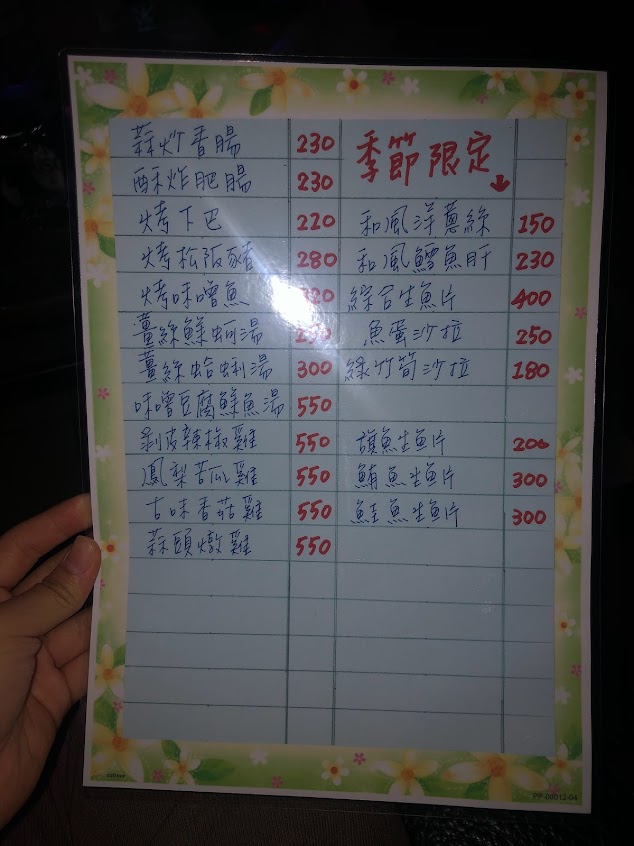 蒜炸香腸 230
酥炸肥腸 230
烤下巴 220
烤松阪豬 280
烤味噌魚 20
薑絲鮮蚵湯
薑絲蛤蜊湯 300
味噌豆腐鮮魚湯 550
剝皮辣椒雞 550
鳳梨苦瓜雞 550
古味香菇雞 550
蒜頭燉雞 550
季節限定↓
和風洋蔥絲 150
和風鱈魚肝 230
綜合生魚片 400
魚蛋沙拉 250
綠竹筍沙拉 180
旗魚生魚片 200
鮪魚生魚片 300
鮭魚生魚片 300
PP-00012-04